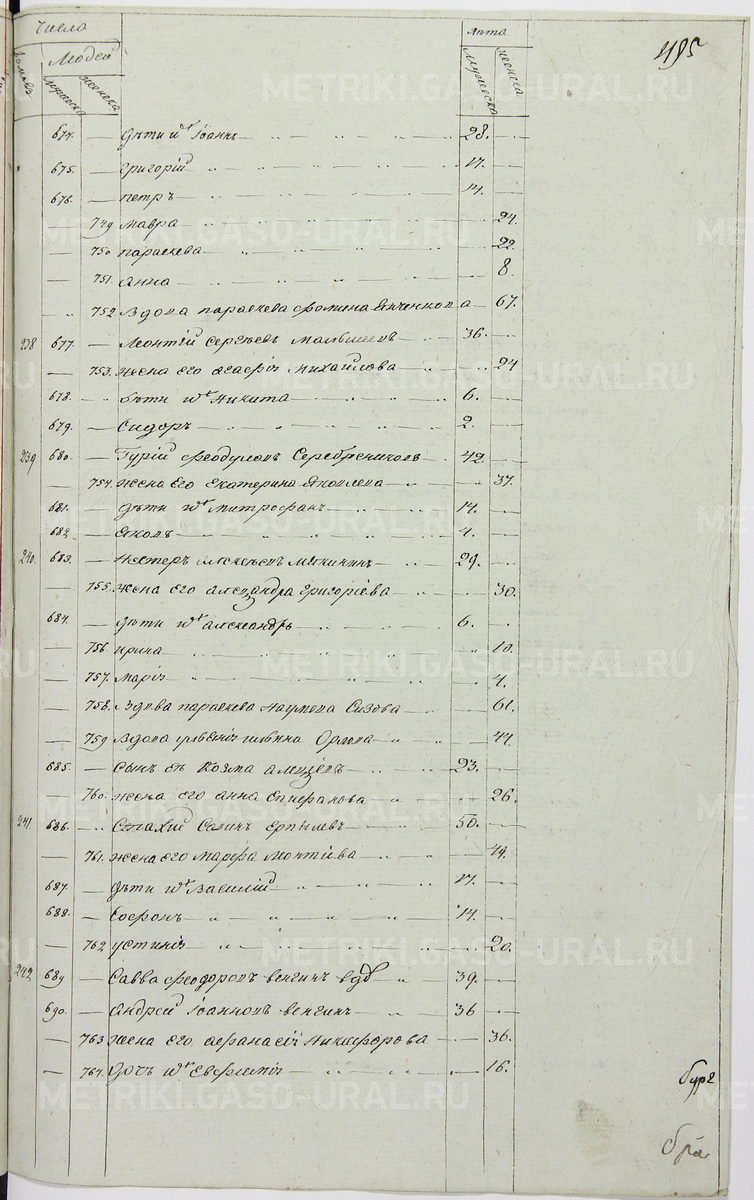 Числа Лѣта 495
домовъ Людей Мужеска женска Мужеска женска
674. — дѣти ихъ Іоаннъ — 28. —
675. — Григорій — 17. —
676. — петръ — 14. —
— 749 мавра — 24.
— 750 параскева — 22
— 751. Анна — 8.
752 вдова параскева фомина — 67.
238 677. — Леонтій Сергѣевъ Малышевъ 36. —
— 753. жена его Михаилова — 24
678. дѣти ихъ Никита 6. —
679. — Сидоръ 2. —
239 680. — Гурій феодуловъ Серебрениковъ — 42. —
— 754. жена Его Екатерина Яковлева — 37.
681. — дѣти ихъ митрофанъ 14. —
682. — Яковъ 4. —
240. 683. — Нестеръ 29. —
— 755. жена его александра григоріева — 30.
684. — дѣти ихъ александръ 6. —
— 756. ирина — 10.
— 757. марія — 4.
— 758. вдова параскева Наумова Сизова — 61.
— 759 вдова Орлова — 44.
685. — сынъ ея Козма 23. —
— 760. жена его анна Епифанова — 26.
241. 686. 50. —
— 761. жена его Марфа — 49.
687. — дѣти ихъ Василій 17. —
688. — 14. —
— 762 устинія — 20.
242 689 — Савва феодоровъ венгинъ вдв 39. —
690. — Андрей Іоанновъ венгинъ 36 —
— 763 жена его афанасія Никифорова — 36.
— 764. дочь ихъ Евфимія — 16.
METRIKI.GASO-URAL.RU